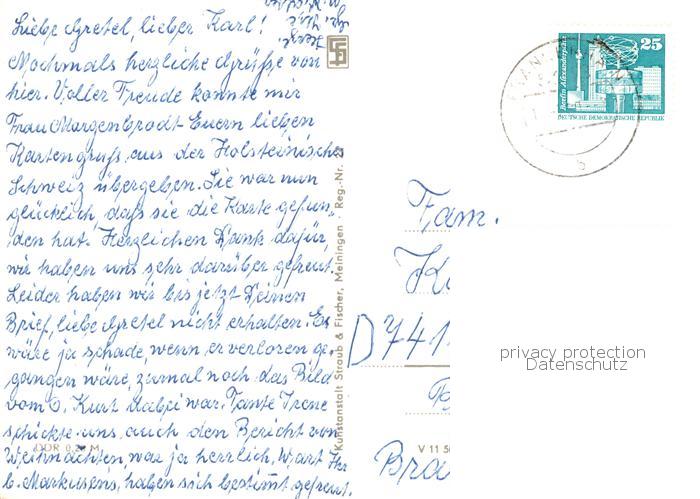 Liebe Gretel, lieber Karl!
Nochmals herzliche Grüße von
hier. Voller Freude konnte mir
Frau Morgenbrodt Euern lieben
Kartengruß aus der Holsteinischen
Schweiz übergeben. Sie war nun
glücklich, daß sie die Karte gefun-
den hat. Herzlichen Dank dafür,
wir haben uns sehr darüber gefreut.
Leider haben wir bis jetzt Deinen
Brief, liebe Gretel nicht erhalten. Es
wäre ja schade, wenn er verloren ge-
gangen wäre, zumal noch das Bild
vom O. Kurt dabei war. Tante Irene
schickte uns auch den Bericht von
Weihnachten, war ja herrlich. W. art
b. Markusens, haben sich bestimmt gefreut.
DDR 0,20 M
Kunstanstalt Straub & Fischer, Meiningen · Reg.-Nr.
25
Berlin, Alexanderplatz
DEUTSCHE DEMOKRATISCHE REPUBLIK
b
Fam.
D 741
V 11 50
Bra
privacy protection
Datenschutz